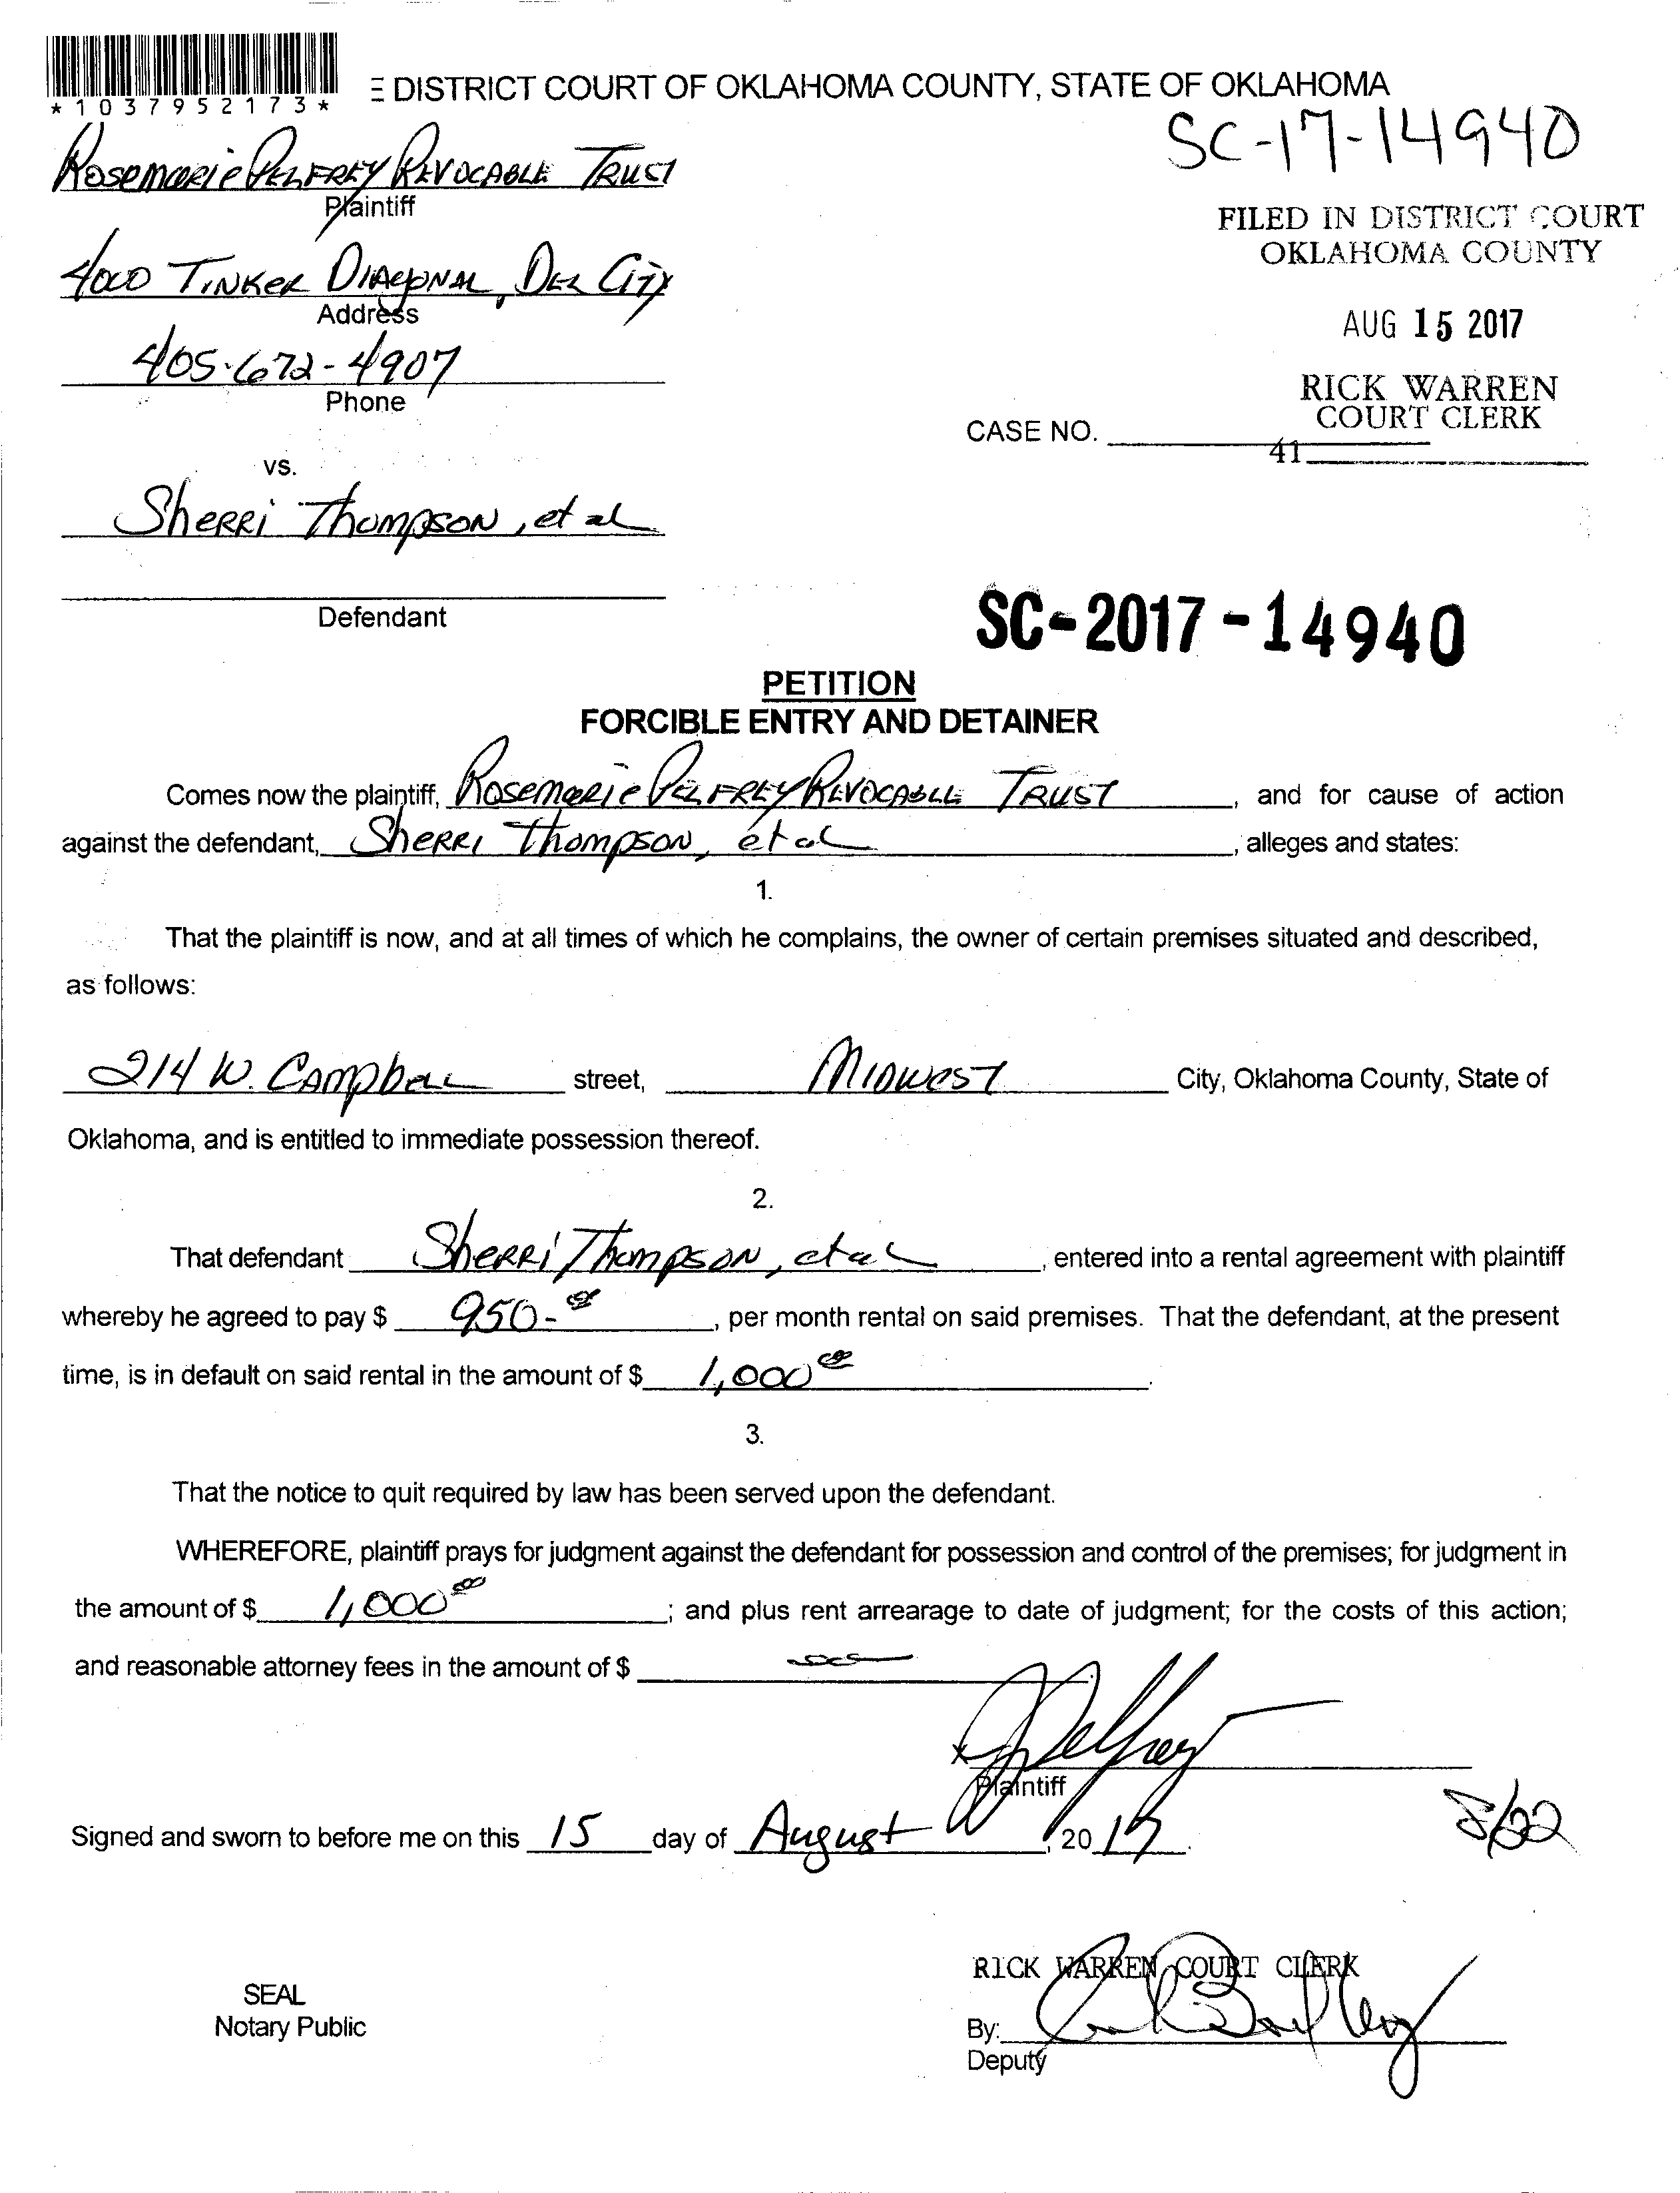 *1037952173*
E DISTRICT COURT OF OKLAHOMA COUNTY, STATE OF OKLAHOMA
SC-17-14940
Rosemarie Pelfrey Revocable Trust
Plaintiff
FILED IN DISTRICT COURT
OKLAHOMA COUNTY
4000 Tinker Diagonal, Del City
Address
AUG 15 2017
405-672-4907
Phone
RICK WARREN
COURT CLERK
CASE NO.
41
vs.
Sherri Thompson, et al
Defendant
SC-2017-14940
PETITION
FORCIBLE ENTRY AND DETAINER
Comes now the plaintiff, Rosemarie Pelfrey Revocable Trust, and for cause of action
against the defendant, Sherri Thompson, et al, alleges and states:
1.
That the plaintiff is now, and at all times of which he complains, the owner of certain premises situated and described,
as follows:
214 W. Campbell street, Midwest City, Oklahoma County, State of
Oklahoma, and is entitled to immediate possession thereof.
2.
That defendant Sherri Thompson, et al, entered into a rental agreement with plaintiff
whereby he agreed to pay $ 950-00, per month rental on said premises. That the defendant, at the present
time, is in default on said rental in the amount of $ 1,000 00.
3.
That the notice to quit required by law has been served upon the defendant.
WHEREFORE, plaintiff prays for judgment against the defendant for possession and control of the premises; for judgment in
the amount of $ 1,000 00; and plus rent arrearage to date of judgment; for the costs of this action;
and reasonable attorney fees in the amount of $
x Pelfrey
Plaintiff
8/22
Signed and sworn to before me on this 15 day of August, 2017.
RICK WARREN COURT CLERK
SEAL
Notary Public
By:
Deputy